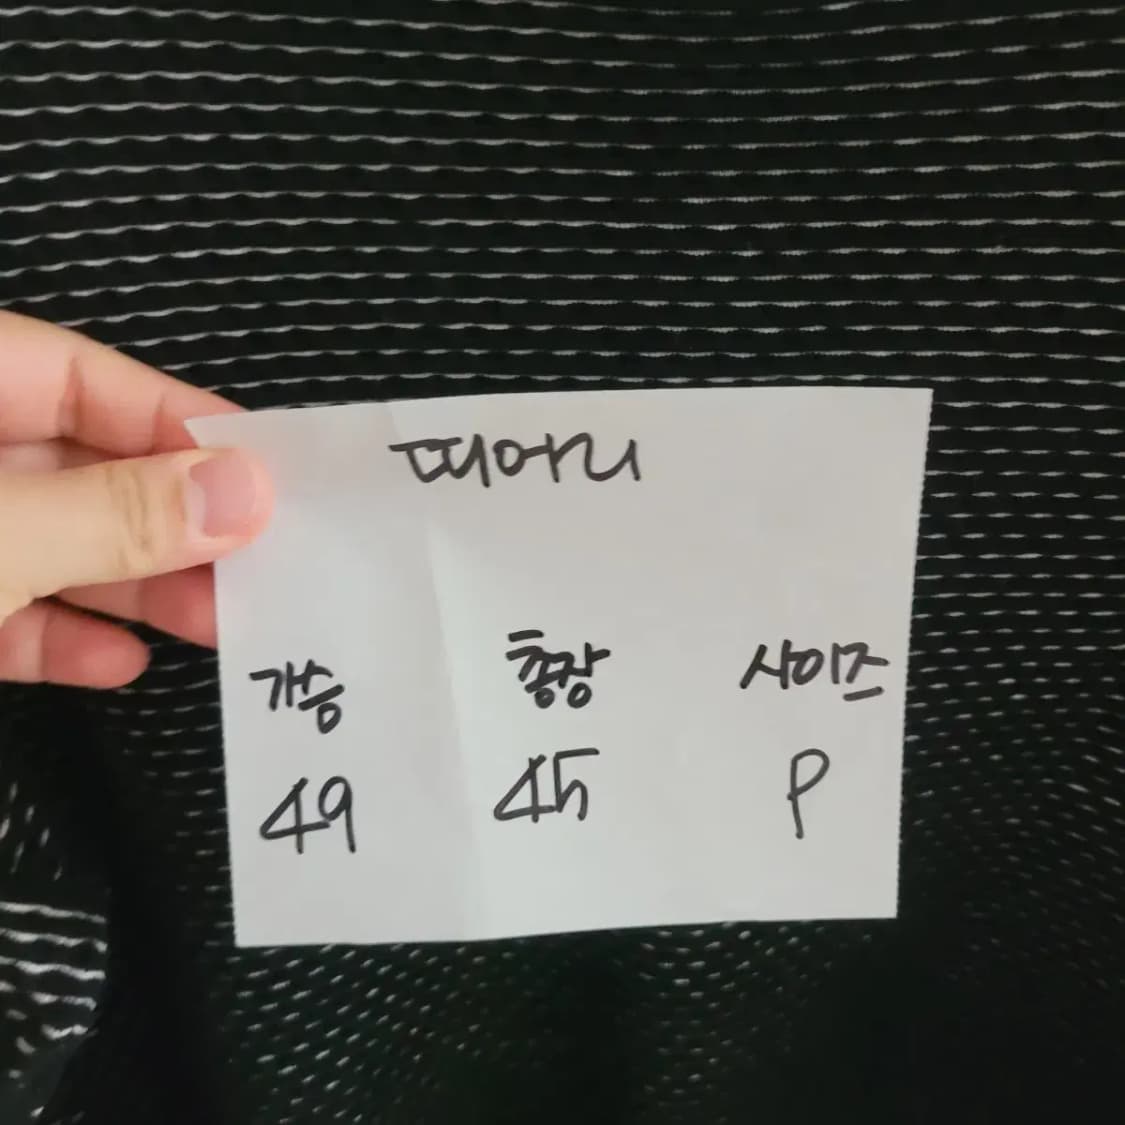 떠아리
가슴 총장 사이즈
49 45 P